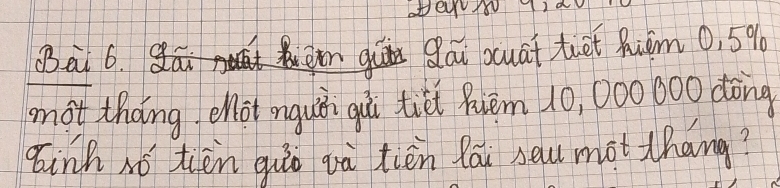 Đáp số 9,20
Bài 6. Lãi suất tiết kiệm 0,5%
một tháng. Một người gửi tiết kiệm 10,000 000 đồng
Tính số tiền gửi và tiền lãi sau một tháng?